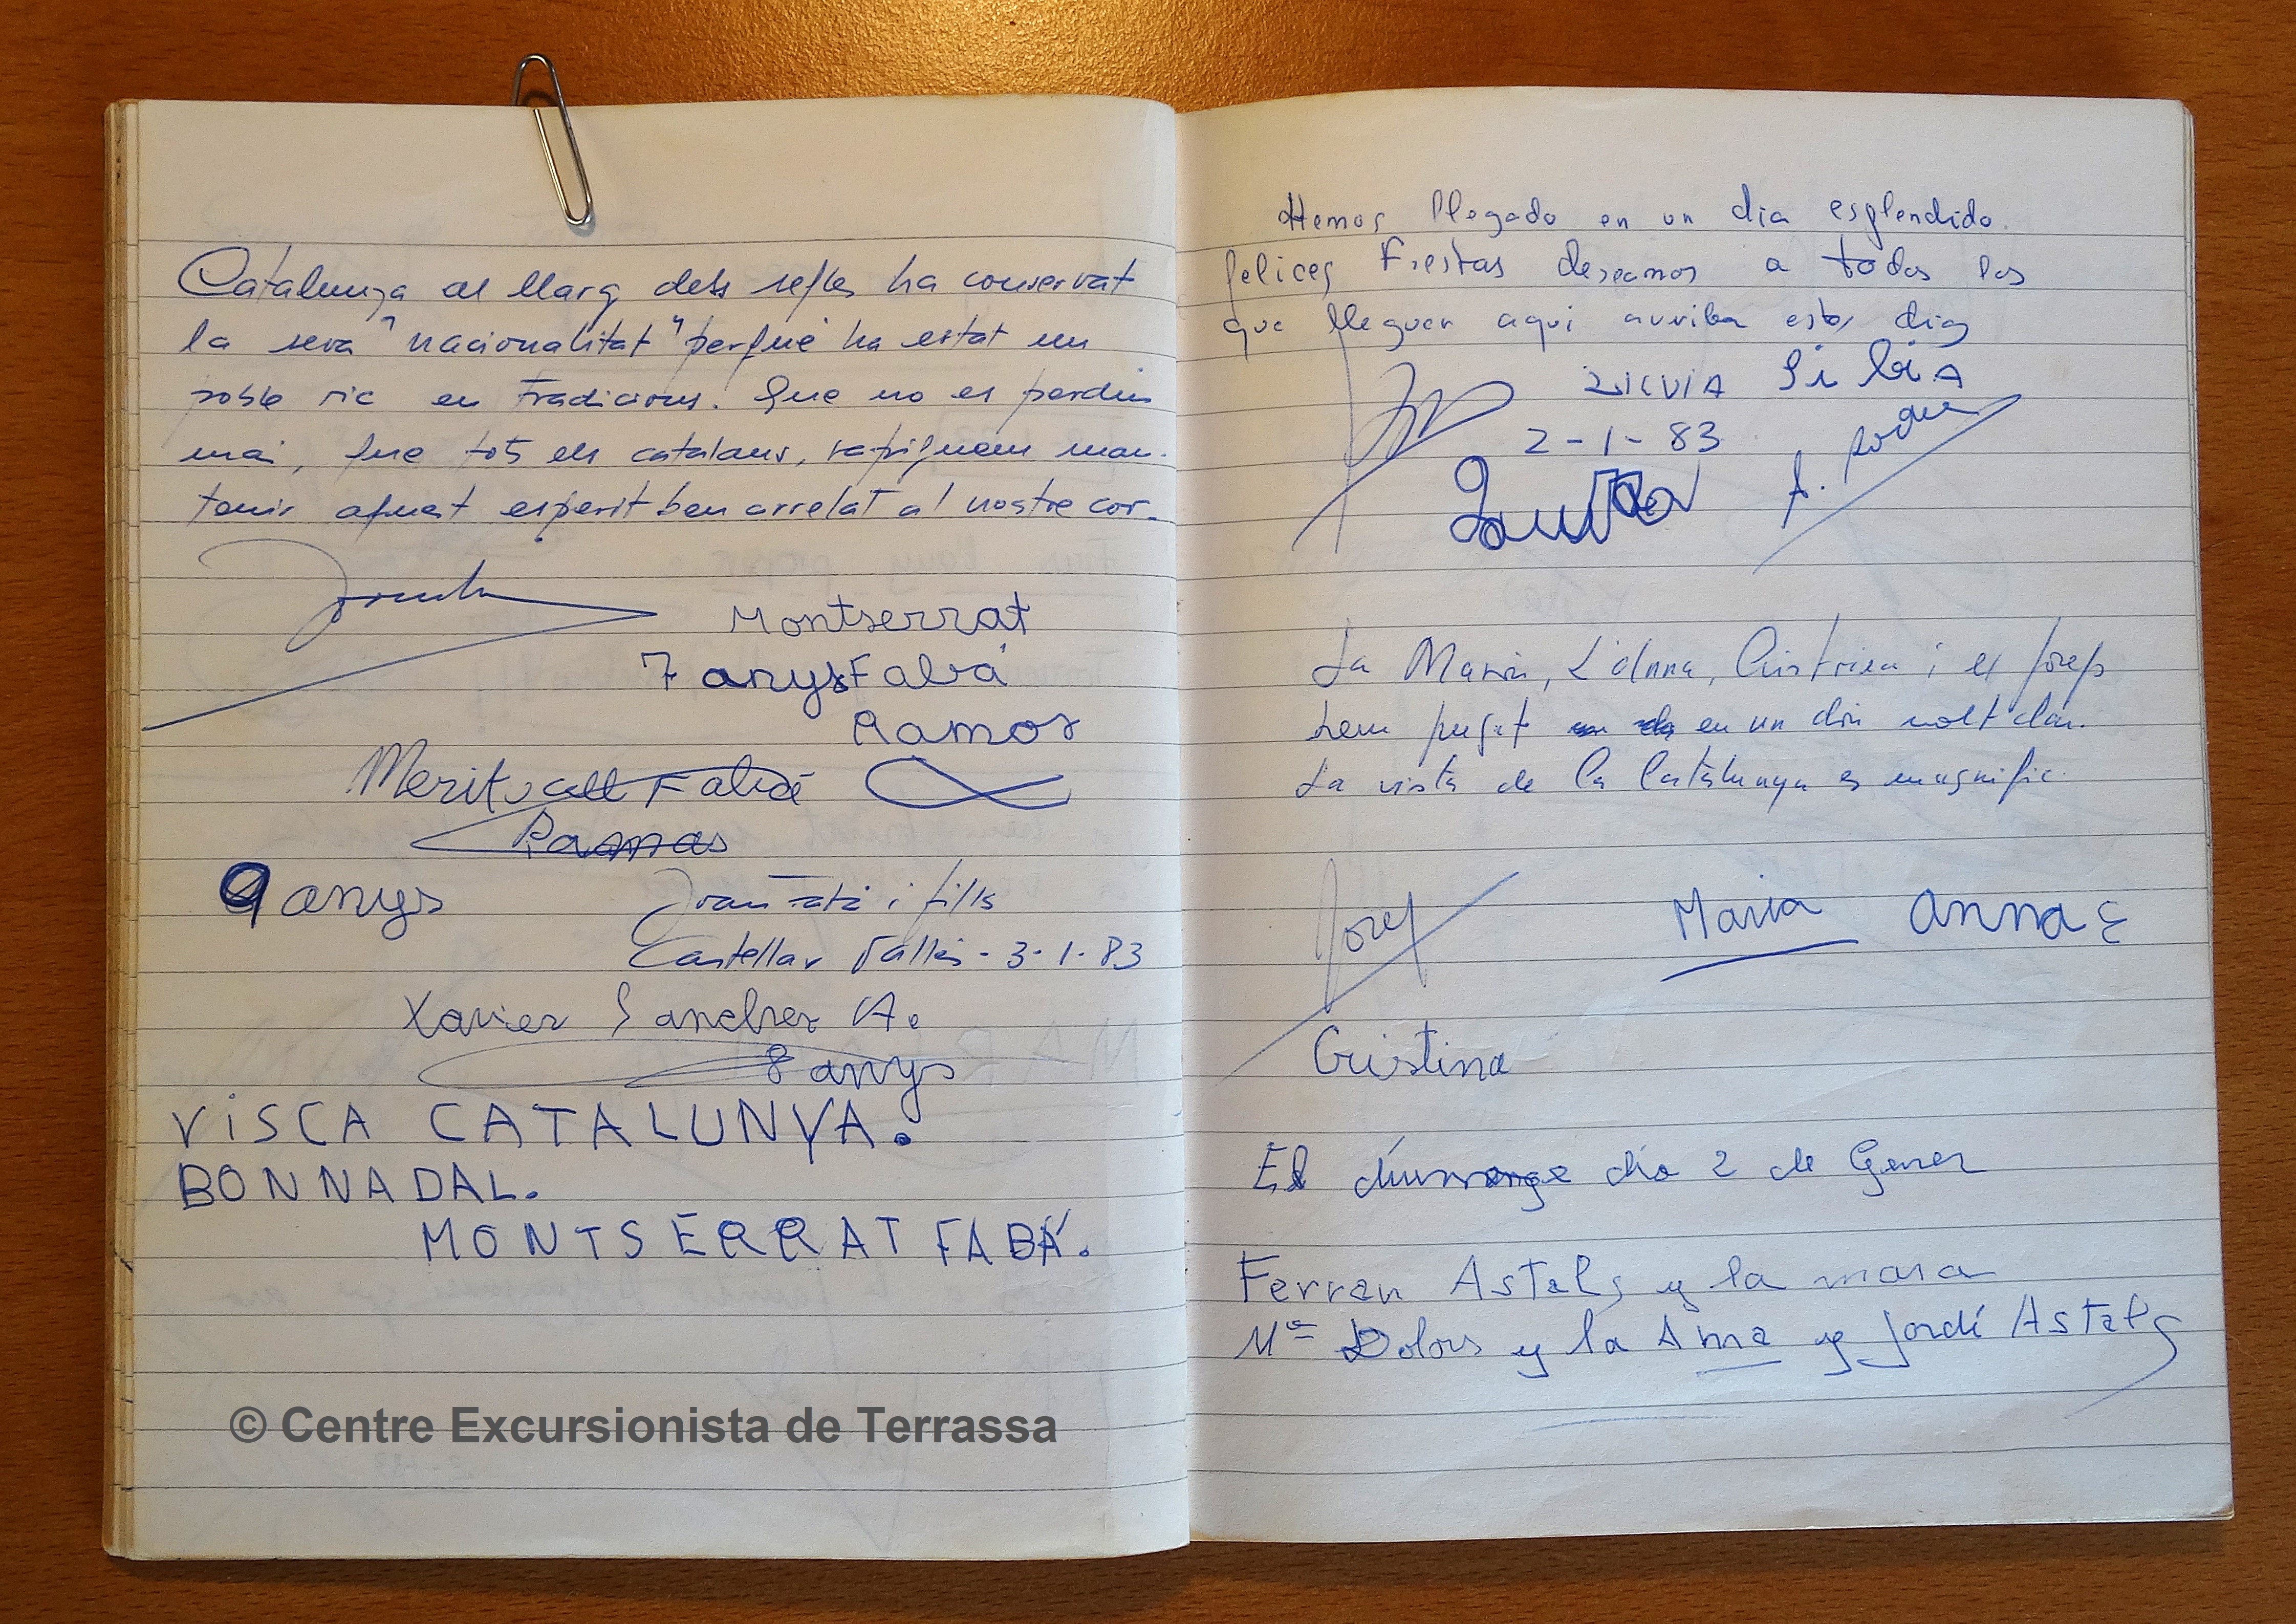 Catalunya al llarg dels segles ha conservat
la seva "nacionalitat" perquè ha estat un
poble ric en tradicions. Que no es perdin
mai, que tots els catalans, sapiguem man-
tenir aquest esperit ben arrelat al nostre cor.
Montserrat
7 anys Fabá
Ramos
Meritxell Fabá
Ramos
9 anys
Joan i fills
Castellar Vallès - 3-1-83
Xavier Sanchez A.
8 anys
VISCA CATALUNYA.
BON NADAL.
MONTSERRAT FABÁ.
Hemos llegado en un dia esplendido.
felices Fiestas deseamos a todos los
que lleguen aqui arriba estos dias
SILVIA SilviA
2-1-83
Laura
La Maria, L'Anna, Cristina i el Josep
hem pujat en un dia molt clar.
La vista de la Catalunya es magnific.
Josep
Maria
Anna
Cristina
El diumenge dia 2 de Gener
Ferran Astals y la mara
Mª Dolors y la Anna y Jordi Astals
© Centre Excursionista de Terrassa